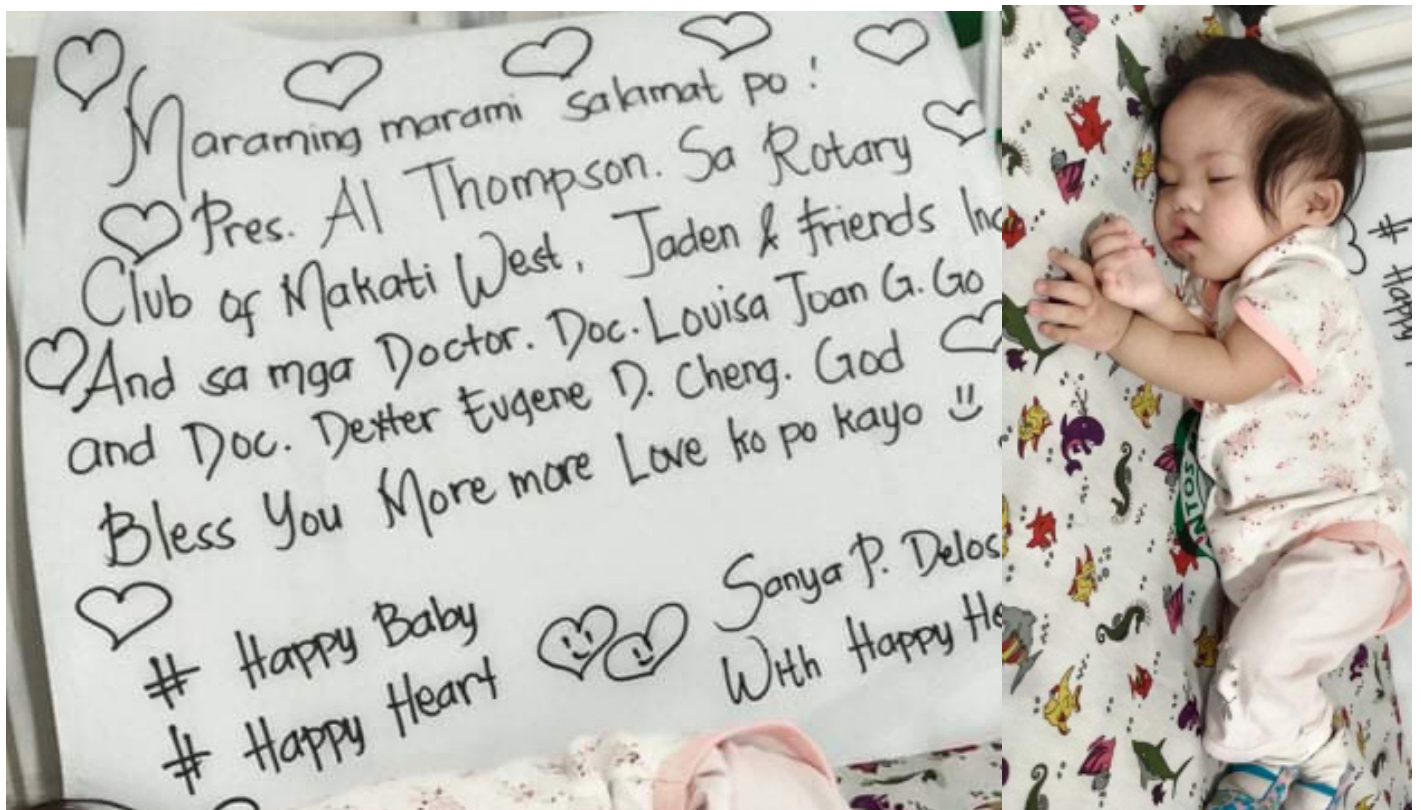 Maraming marami salamat po!
Pres. Al Thompson. Sa Rotary
Club of Makati West, Jaden & friends Inc
And sa mga Doctor. Doc. Louisa Joan G. Go
and Doc. Dexter Eugene D. Cheng. God
Bless You More more Love ko po kayo
Sanya P. Delos
With Happy He
# Happy Baby
# Happy Heart
#
Happy
NTOS